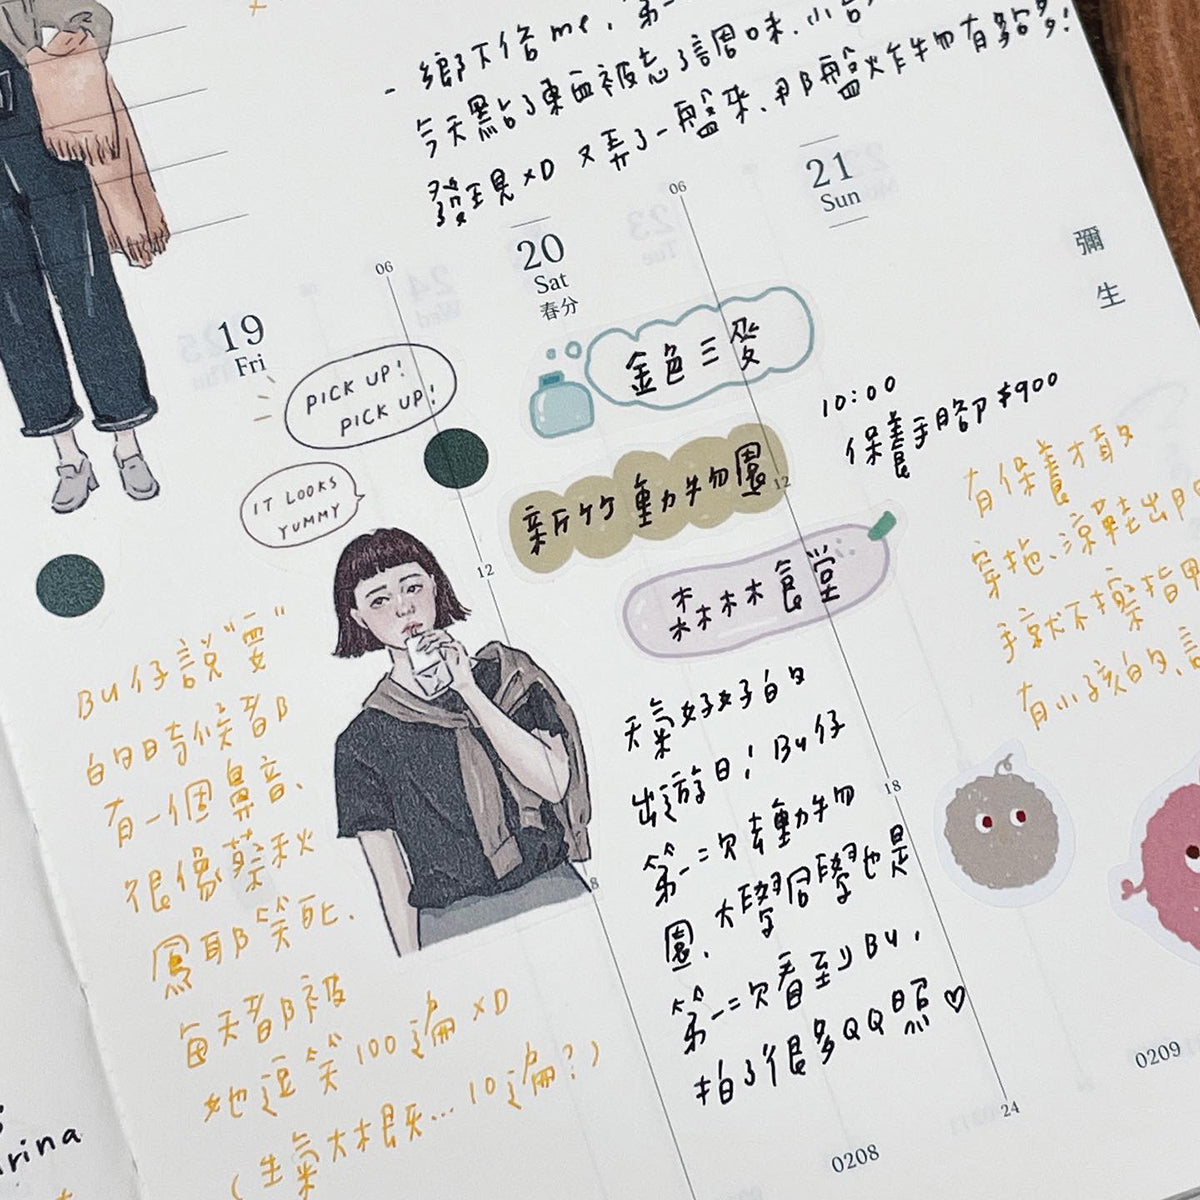 - 鄉下倍me, 第一
今天點了東西被忘了這回味、小台
發現xD 又弄了一盤來、那盤炸物有夠多!
19
Fri
06
PICK UP!
PICK UP!
IT LOOKS
YUMMY
12
Bu仔說"要"
的時候都
有一個鼻音、
很像蔡秋
鳳耶笑死.
每天都被
她逗笑100遍xD
(生氣大概... 10遍?)
20
Sat
春分
06
金色三麥
新竹動物園
12
森林木食堂
天氣好好的
出遊日! Bu仔
第二次去動物
園、大學同學也是
第二次看到Bu,
拍了很多QQ照♡
18
24
0208
21
Sun
10:00
保養手腳 $900
有保養才敢
穿拖、涼鞋出門
手就不擦指甲
有小孩的
0209
彌
生
rina